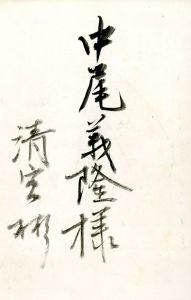 中尾義隆様
清宮彬